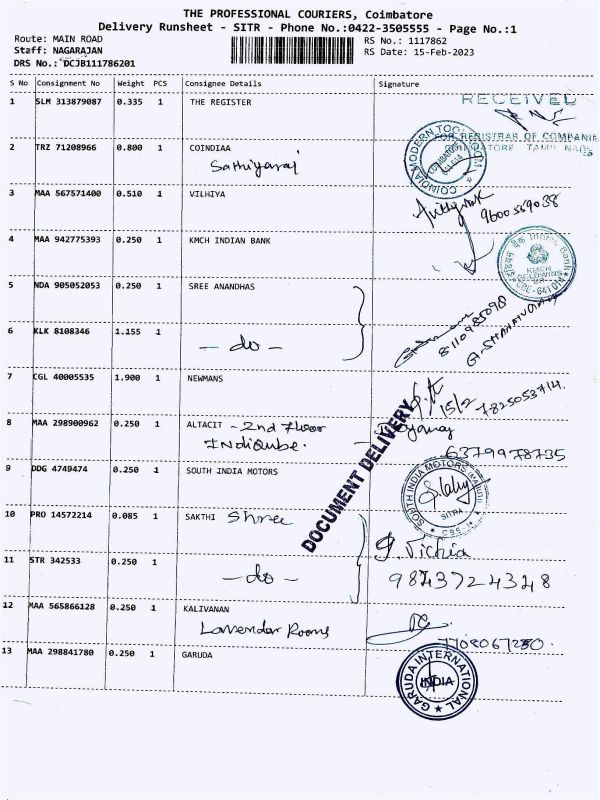 THE PROFESSIONAL COURIERS, Coimbatore
Delivery Runsheet - SITR - Phone No.:0422-3505555 - Page No.:1
Route: MAIN ROAD
Staff: NAGARAJAN
DRS No.: DCJB111786201
RS No.: 1117862
RS Date: 15-Feb-2023
S No Consignment No Weight PCS Consignee Details Signature
1 SLM 313879087 0.335 1 THE REGISTER
RECEIVED
FOR REGISTRAR OF COMPANIE
COIMBATORE TAMIL NADU
2 TRZ 71208966 0.800 1 COINDIAA
Sathiyaraj
3 MAA 567571400 0.510 1 VILHIYA
9600559038
4 MAA 942775393 0.250 1 KMCH INDIAN BANK
KMCH
GOLDWINS
CBE-641 014
5 NDA 905052053 0.250 1 SREE ANANDHAS
8110985098
6 KLK 8108346 1.155 1
- do -
7 CGL 40005535 1.900 1 NEWMANS
15/2 7825053714.
8 MAA 298900962 0.250 1 ALTACIT - 2nd Floor
IndiQube.
6379978735
DOCUMENT DELIVERY
9 DDG 4749474 0.250 1 SOUTH INDIA MOTORS
SOUTH INDIA MOTORS
SITRA
10 PRO 14572214 0.085 1 SAKTHI Shree
11 STR 342533 0.250 1
- do -
9843724328
12 MAA 565866128 0.250 1 KALIVANAN
Lavendar Rooms
7708067250.
13 MAA 298841780 0.250 1 GARUDA
GARUDA INTERNATIONAL
INDIA